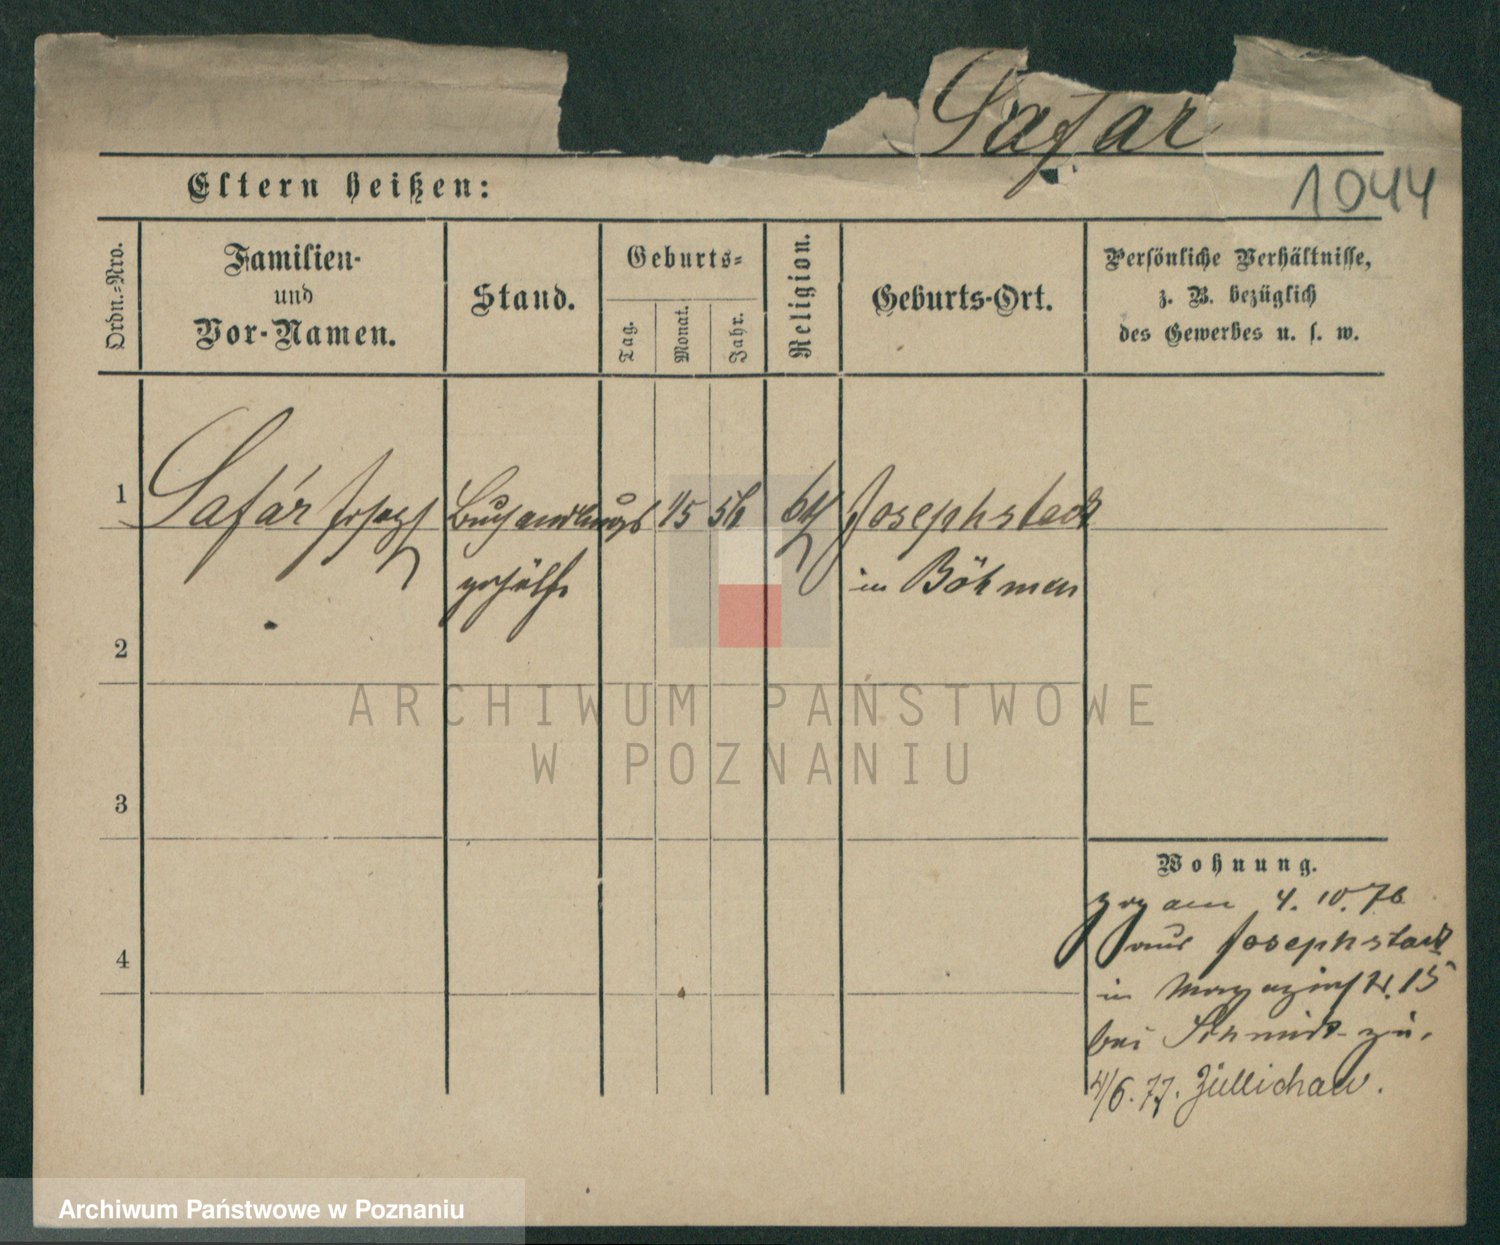 Safar
1044
Eltern heißen:
Ordn.-Nro.
Familien-
und
Vor-Namen.
Stand.
Geburts-
Tag.
Monat.
Jahr.
Religion.
Geburts-Ort.
Persönliche Verhältnisse,
z. B. bezüglich
des Gewerbes u. s. w.
1
Safár Josef
Buchandlungs
gehülfe
15
Josephstadt
in Böhmen
2
ARCHIWUM PAŃSTWOWE
W POZNANIU
3
Wohnung.
zog am 4. 10. 76
aus Josephstadt
4
in Magazinst. 15
bei Schmidt zu.
4/6. 77. Züllichau.
Archiwum Państwowe w Poznaniu